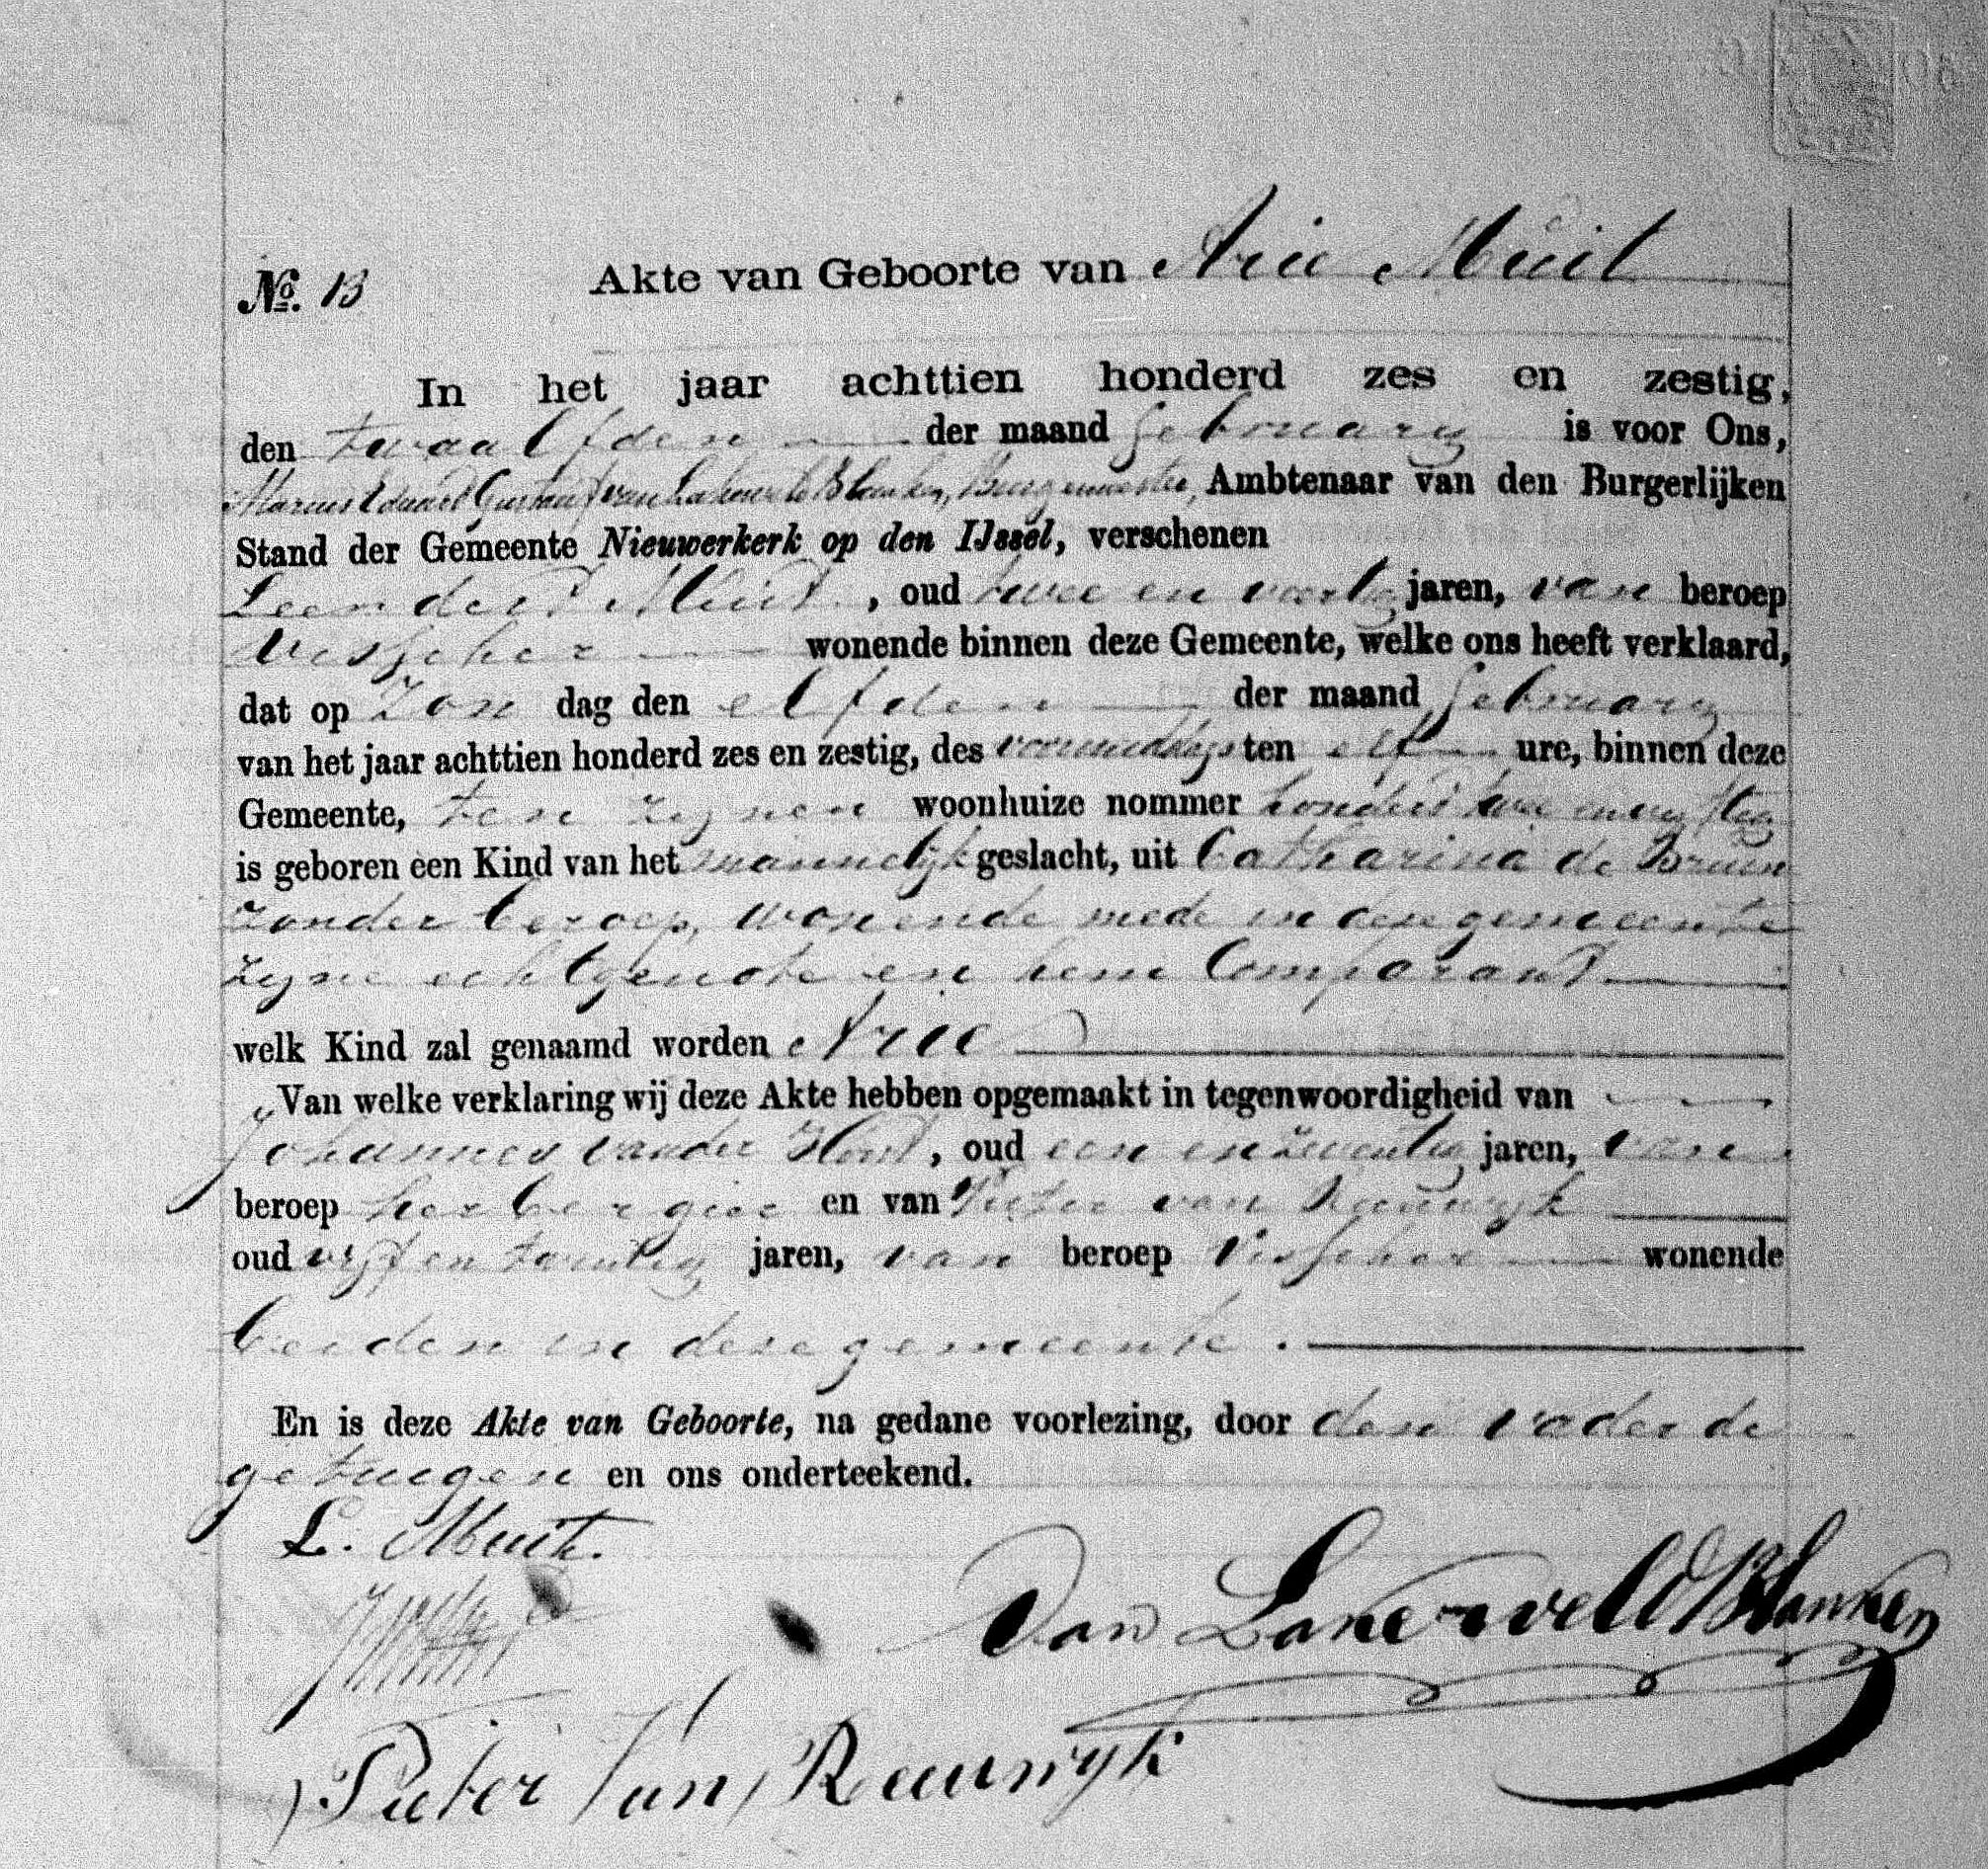 No. 13 Akte van Geboorte van Arie Muit
In het jaar achttien honderd zes en zestig,
den twaalfden der maand February is voor Ons,
Marius Eduard Gustaaf van Lakerveld Blanken, Burgemeester, Ambtenaar van den Burgerlijken
Stand der Gemeente Nieuwerkerk op den IJssel, verschenen
Leendert Muit, oud twee en veertig jaren, van beroep
Visscher wonende binnen deze Gemeente, welke ons heeft verklaard,
dat op Zon dag den elfden der maand February
van het jaar achttien honderd zes en zestig, des voormiddags ten elf ure, binnen deze
Gemeente, ten zynen woonhuize nommer honderd twee en vyftig
is geboren een Kind van het mannelyk geslacht, uit Catharina de Bruin
zonder beroep, wonende mede in deze gemeente
zyne echtgenote en hem Comparant
welk Kind zal genaamd worden Arie
Van welke verklaring wij deze Akte hebben opgemaakt in tegenwoordigheid van
Johannes van der, oud een en zeventig jaren, van
beroep herbergier en van Pieter van Reeuwyk
oud vyf en twintig jaren, van beroep Visscher wonende
beiden in deze gemeente.
En is deze Akte van Geboorte, na gedane voorlezing, door den vader de
getuigen en ons onderteekend.
L. Muit.
Van Lakerveld Blanken
Pieter Van Reeuwyk